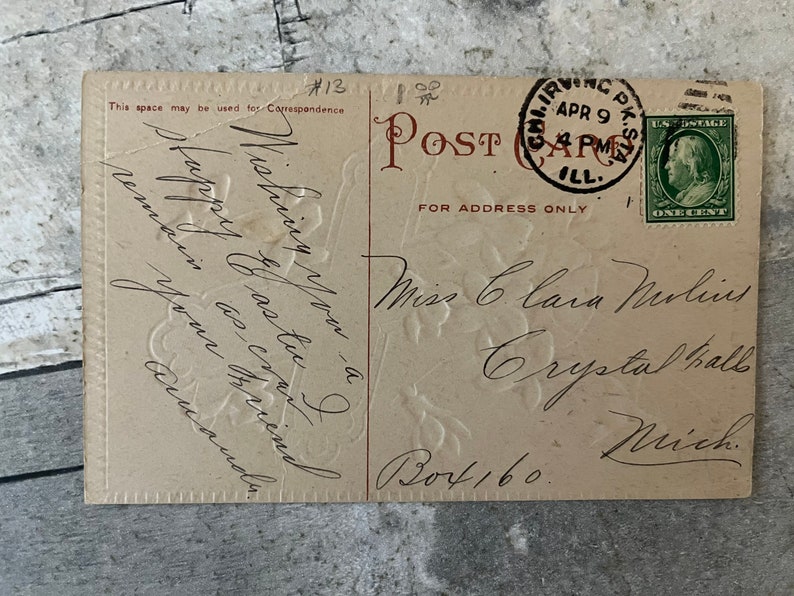 #13
This space may be used for Correspondence
POST CARD
FOR ADDRESS ONLY
CHI. IRVING PK. STA.
APR 9
4 PM
ILL.
U.S. POSTAGE
ONE CENT
Wishing you a
Happy Easter I
remain as ever
your Friend
Amanda.
Miss Clara Molin
Crystal Falls
Mich.
Box 160.